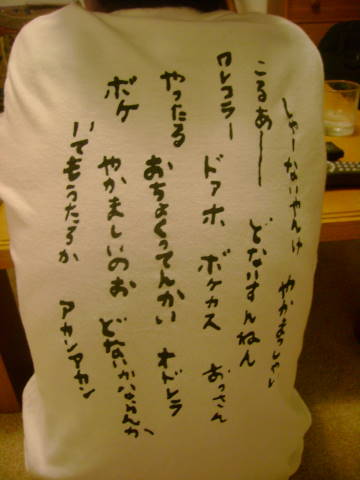 しゃーないやんけ やかまっしゃい
こるあ━ どないすんねん
ワレコラー ドアホ ボケカス おっさん
やったる おちょくってんかい オドレラ
ボケ やかましいのお どないかならんか
いてもうたろか アカンアカン